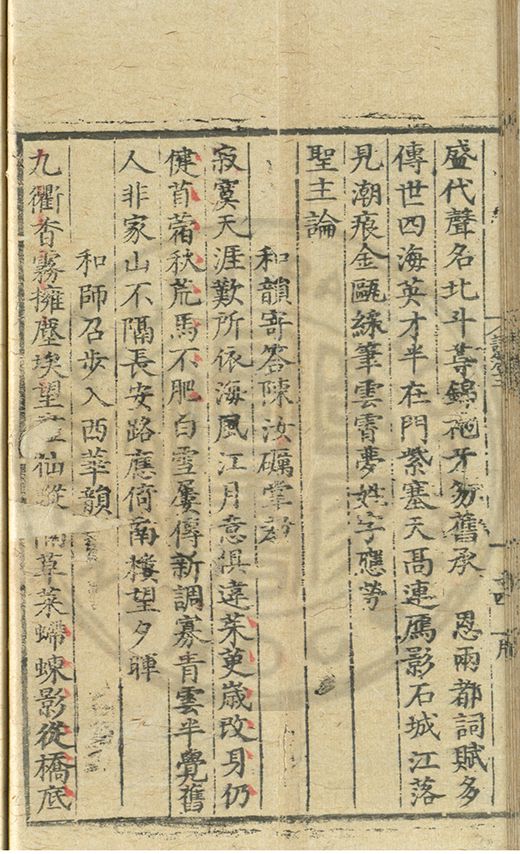 盛代聲名北斗尊錦袍牙笏舊承　恩兩都詞賦多
傳世四海英才半在門紫塞天高連鴈影石城江落
見潮痕金甌綵筆雲霄夢姓字應勞
聖主論
和韻寄答陳汝礪掌教
寂寞天涯歎所依海風江月意俱違茱萸歲改身仍
健苜蓿秋荒馬不肥白雪屢傳新調寡青雲半覺舊
人非家山不隔長安路應倚南樓望夕暉
和師召步入西華韻
九衢香霧擁塵埃望仙蹤草萊螮蝀影從橋底